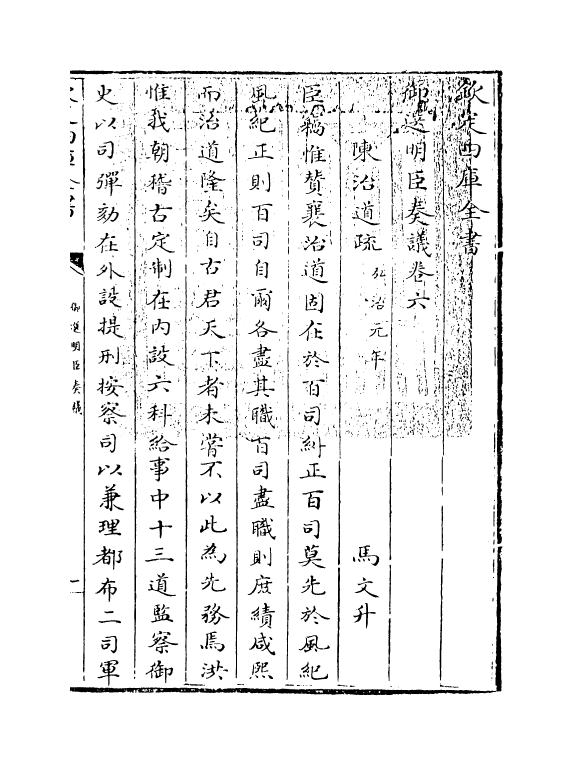 欽定四庫全書
御選明臣奏議卷六
陳治道疏 弘治元年 馬文升
臣竊惟贊襄治道固在於百司糾正百司莫先於風紀
風紀正則百司自爾各盡其職百司盡職則庶績咸熙
而治道隆矣自古君天下者未嘗不以此為先務焉洪
惟我朝稽古定制在內設六科給事中十三道監察御
史以司彈劾在外設提刑按察司以兼理都布二司軍
御選明臣奏議
一